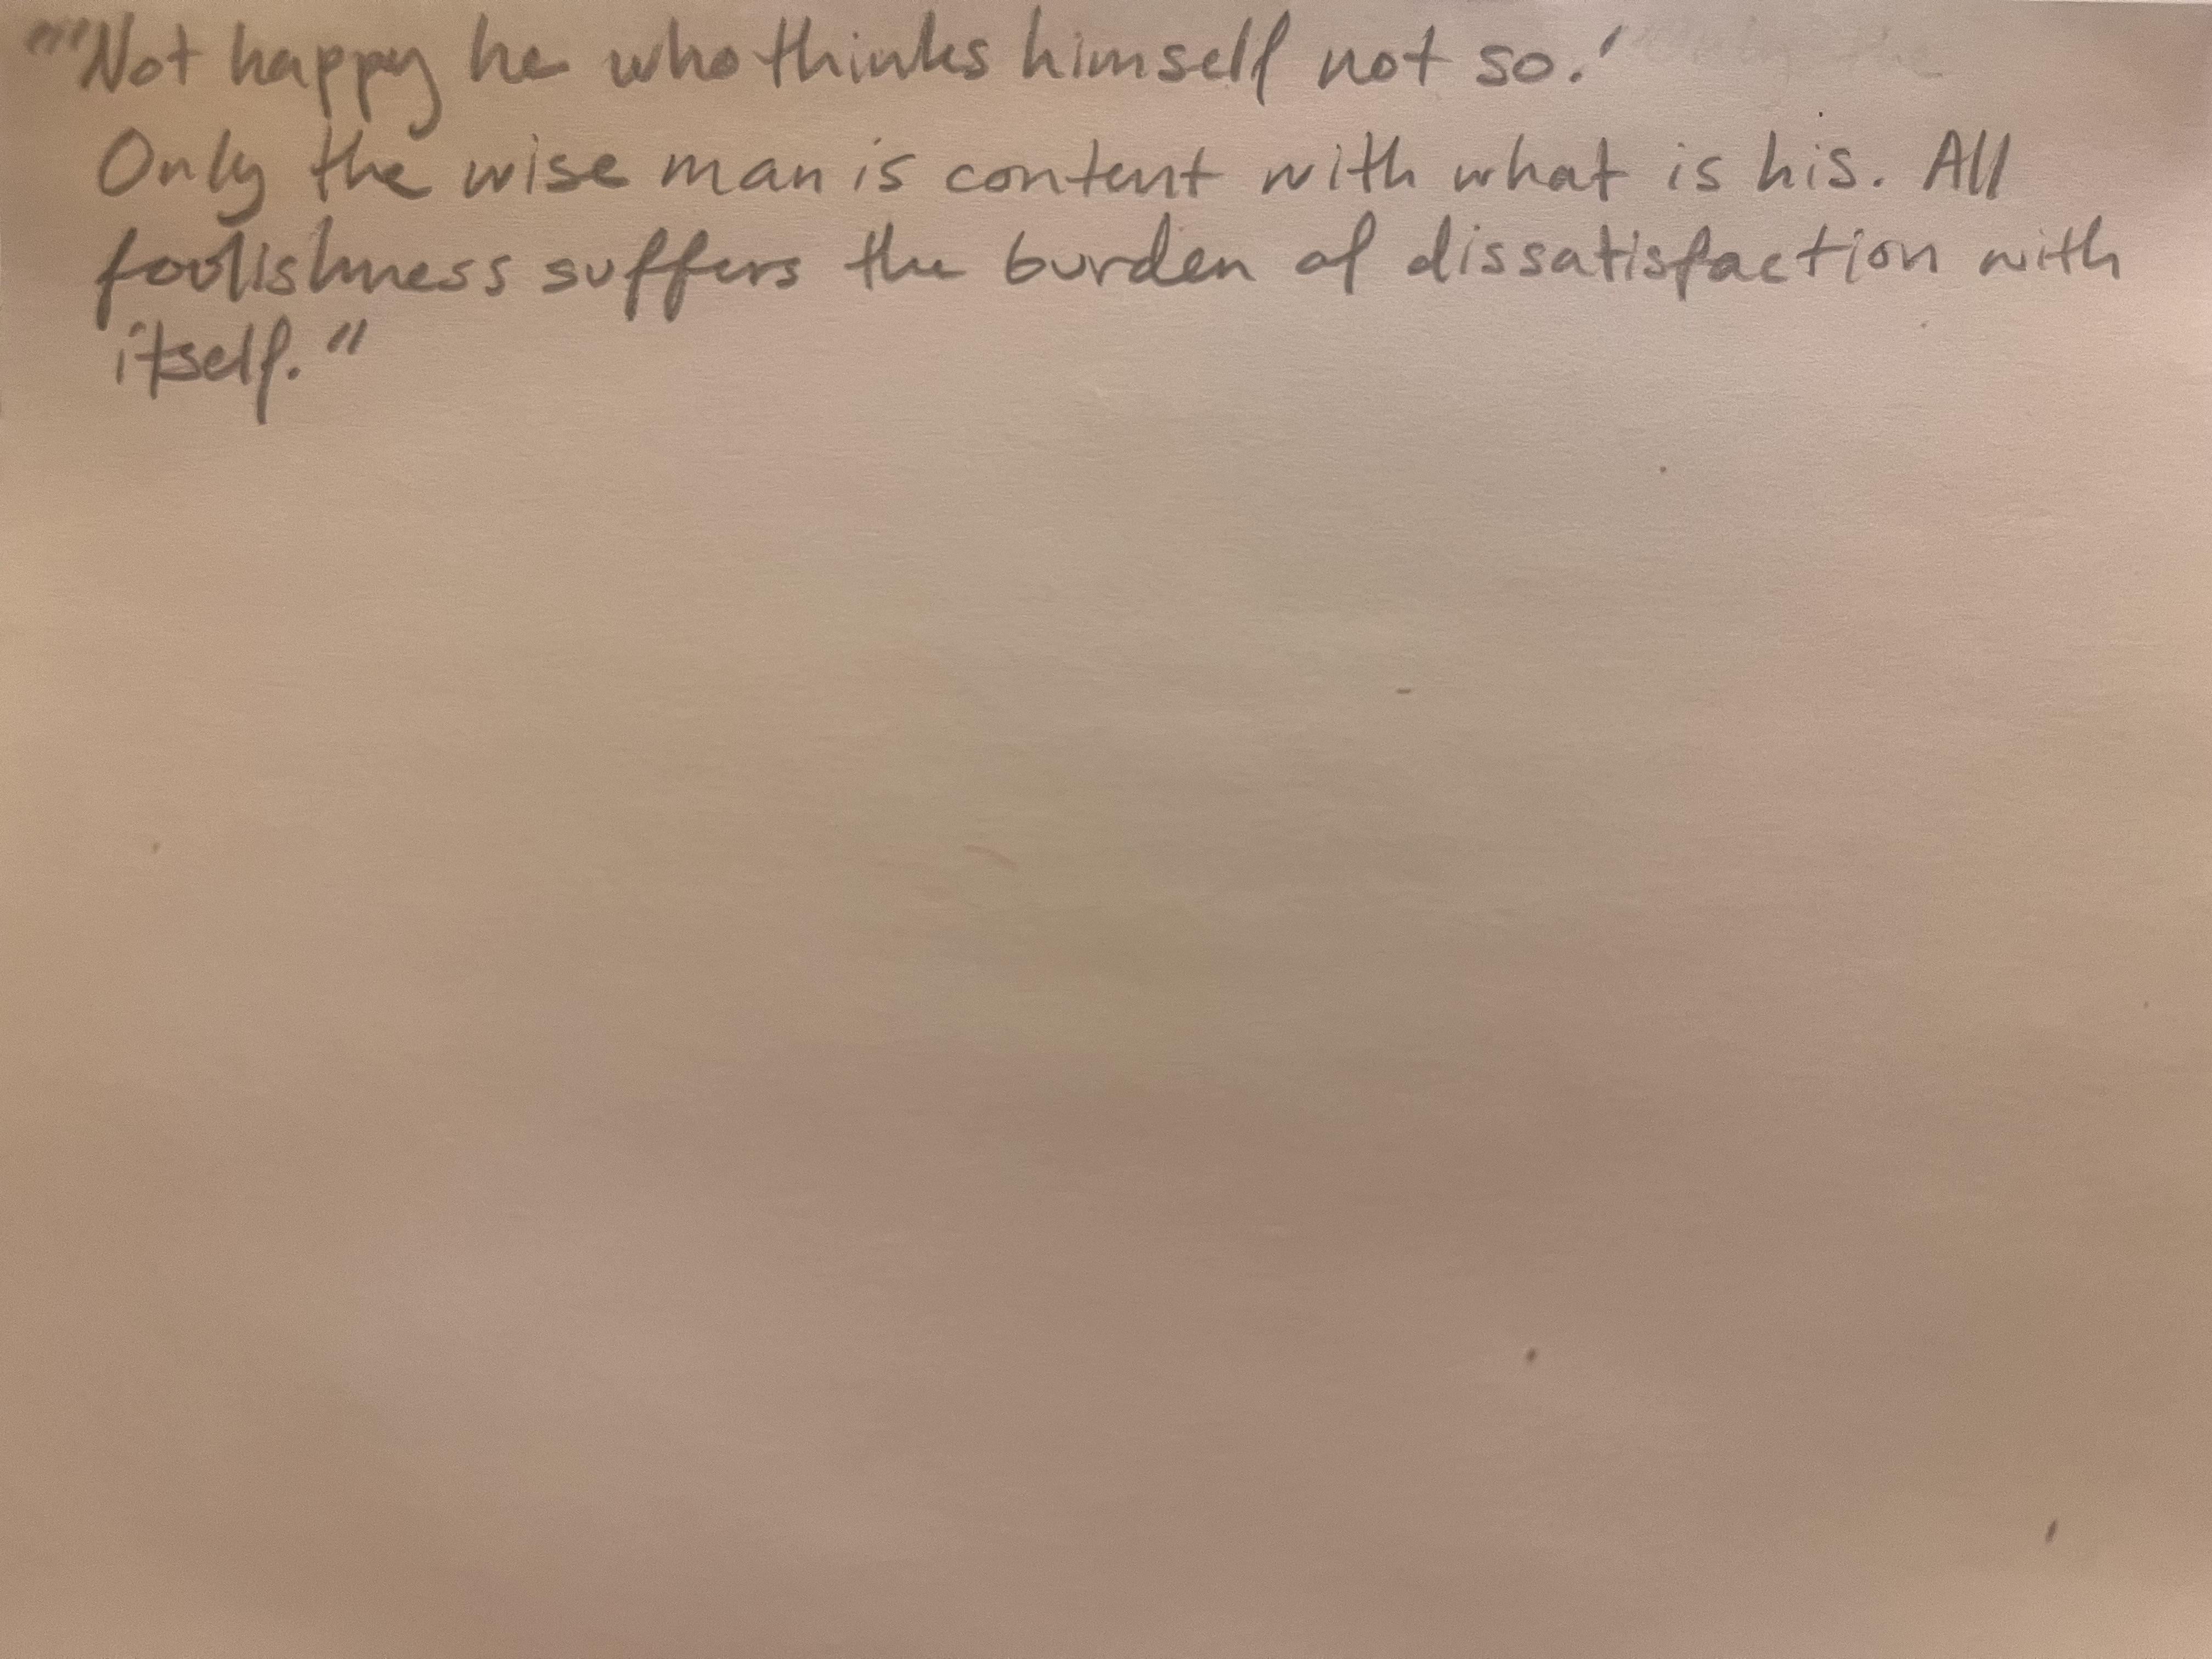 "'Not happy he who thinks himself not so.'
Only the wise man is content with what is his. All
foolishness suffers the burden of dissatisfaction with
itself."